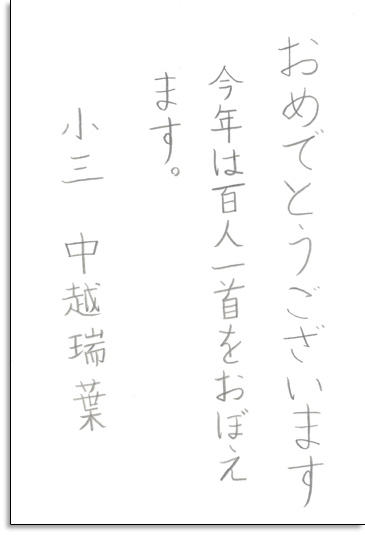 おめでとうございます
今年は百人一首をおぼえ
ます。
小三　中越瑞葉